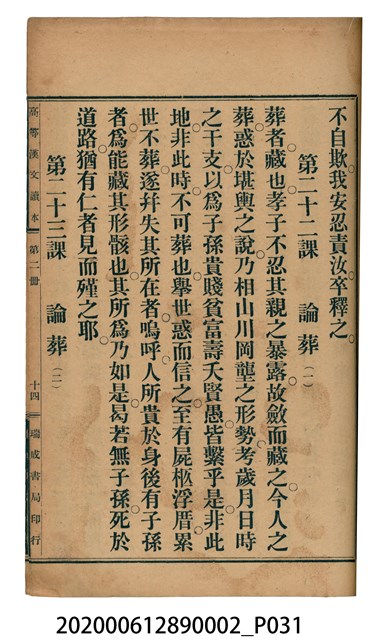 不自欺我安忍責汝卒釋之
第二十二課　論葬(一)
葬者藏也孝子不忍其親之暴露故斂而藏之今人之
葬惑於堪輿之說乃相山川岡壟之形勢考歲月日時
之干支以爲子孫貴賤貧富壽夭賢愚皆繫乎是非此
地非此時不可葬也舉世惑而信之至有屍柩浮厝累
世不葬遂幷失其所在者嗚呼人所貴於身後有子孫
者爲能藏其形骸也其所爲乃如是曷若無子孫死於
道路猶有仁者見而殣之耶
第二十三課　論葬(二)
高等漢文讀本　第二冊　十四　瑞成書局印行
202000612890002_P031